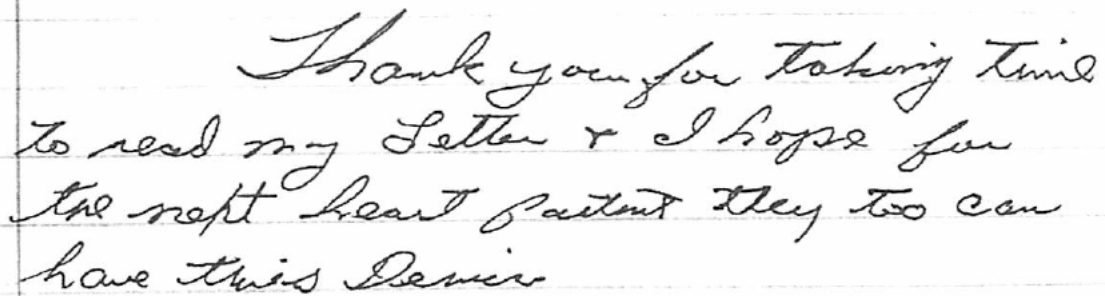 Thank you for taking time
to read my Letter & I hope for
the next heart patient they too can
have this